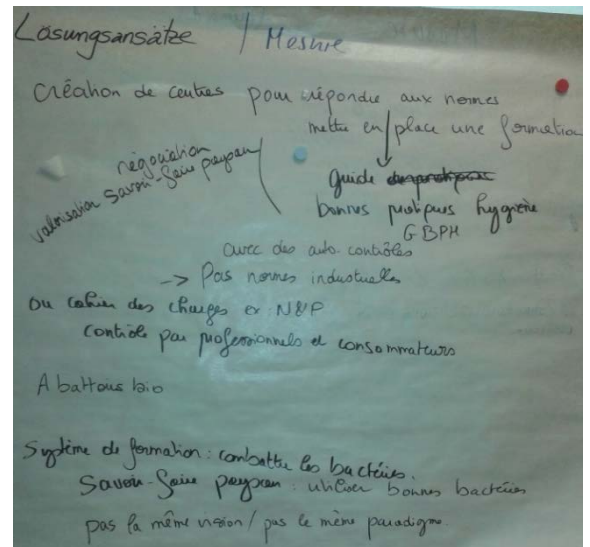 Lösungsansätze / Mesure
Création de centres pour répondre aux normes
mettre en place une formation
négociation
valorisation savoir-faire paysan
guide
bonnes pratiques hygiène
GBPH
avec des auto-contrôles
-> Pas normes industrielles
ou cahier des charges ex: N&P
contrôle par professionnels et consommateurs
Abattoirs bio
Système de formation : combattre les bactéries.
Savoir-faire paysan : utiliser bonnes bactéries
pas la même vision / pas le même paradigme.